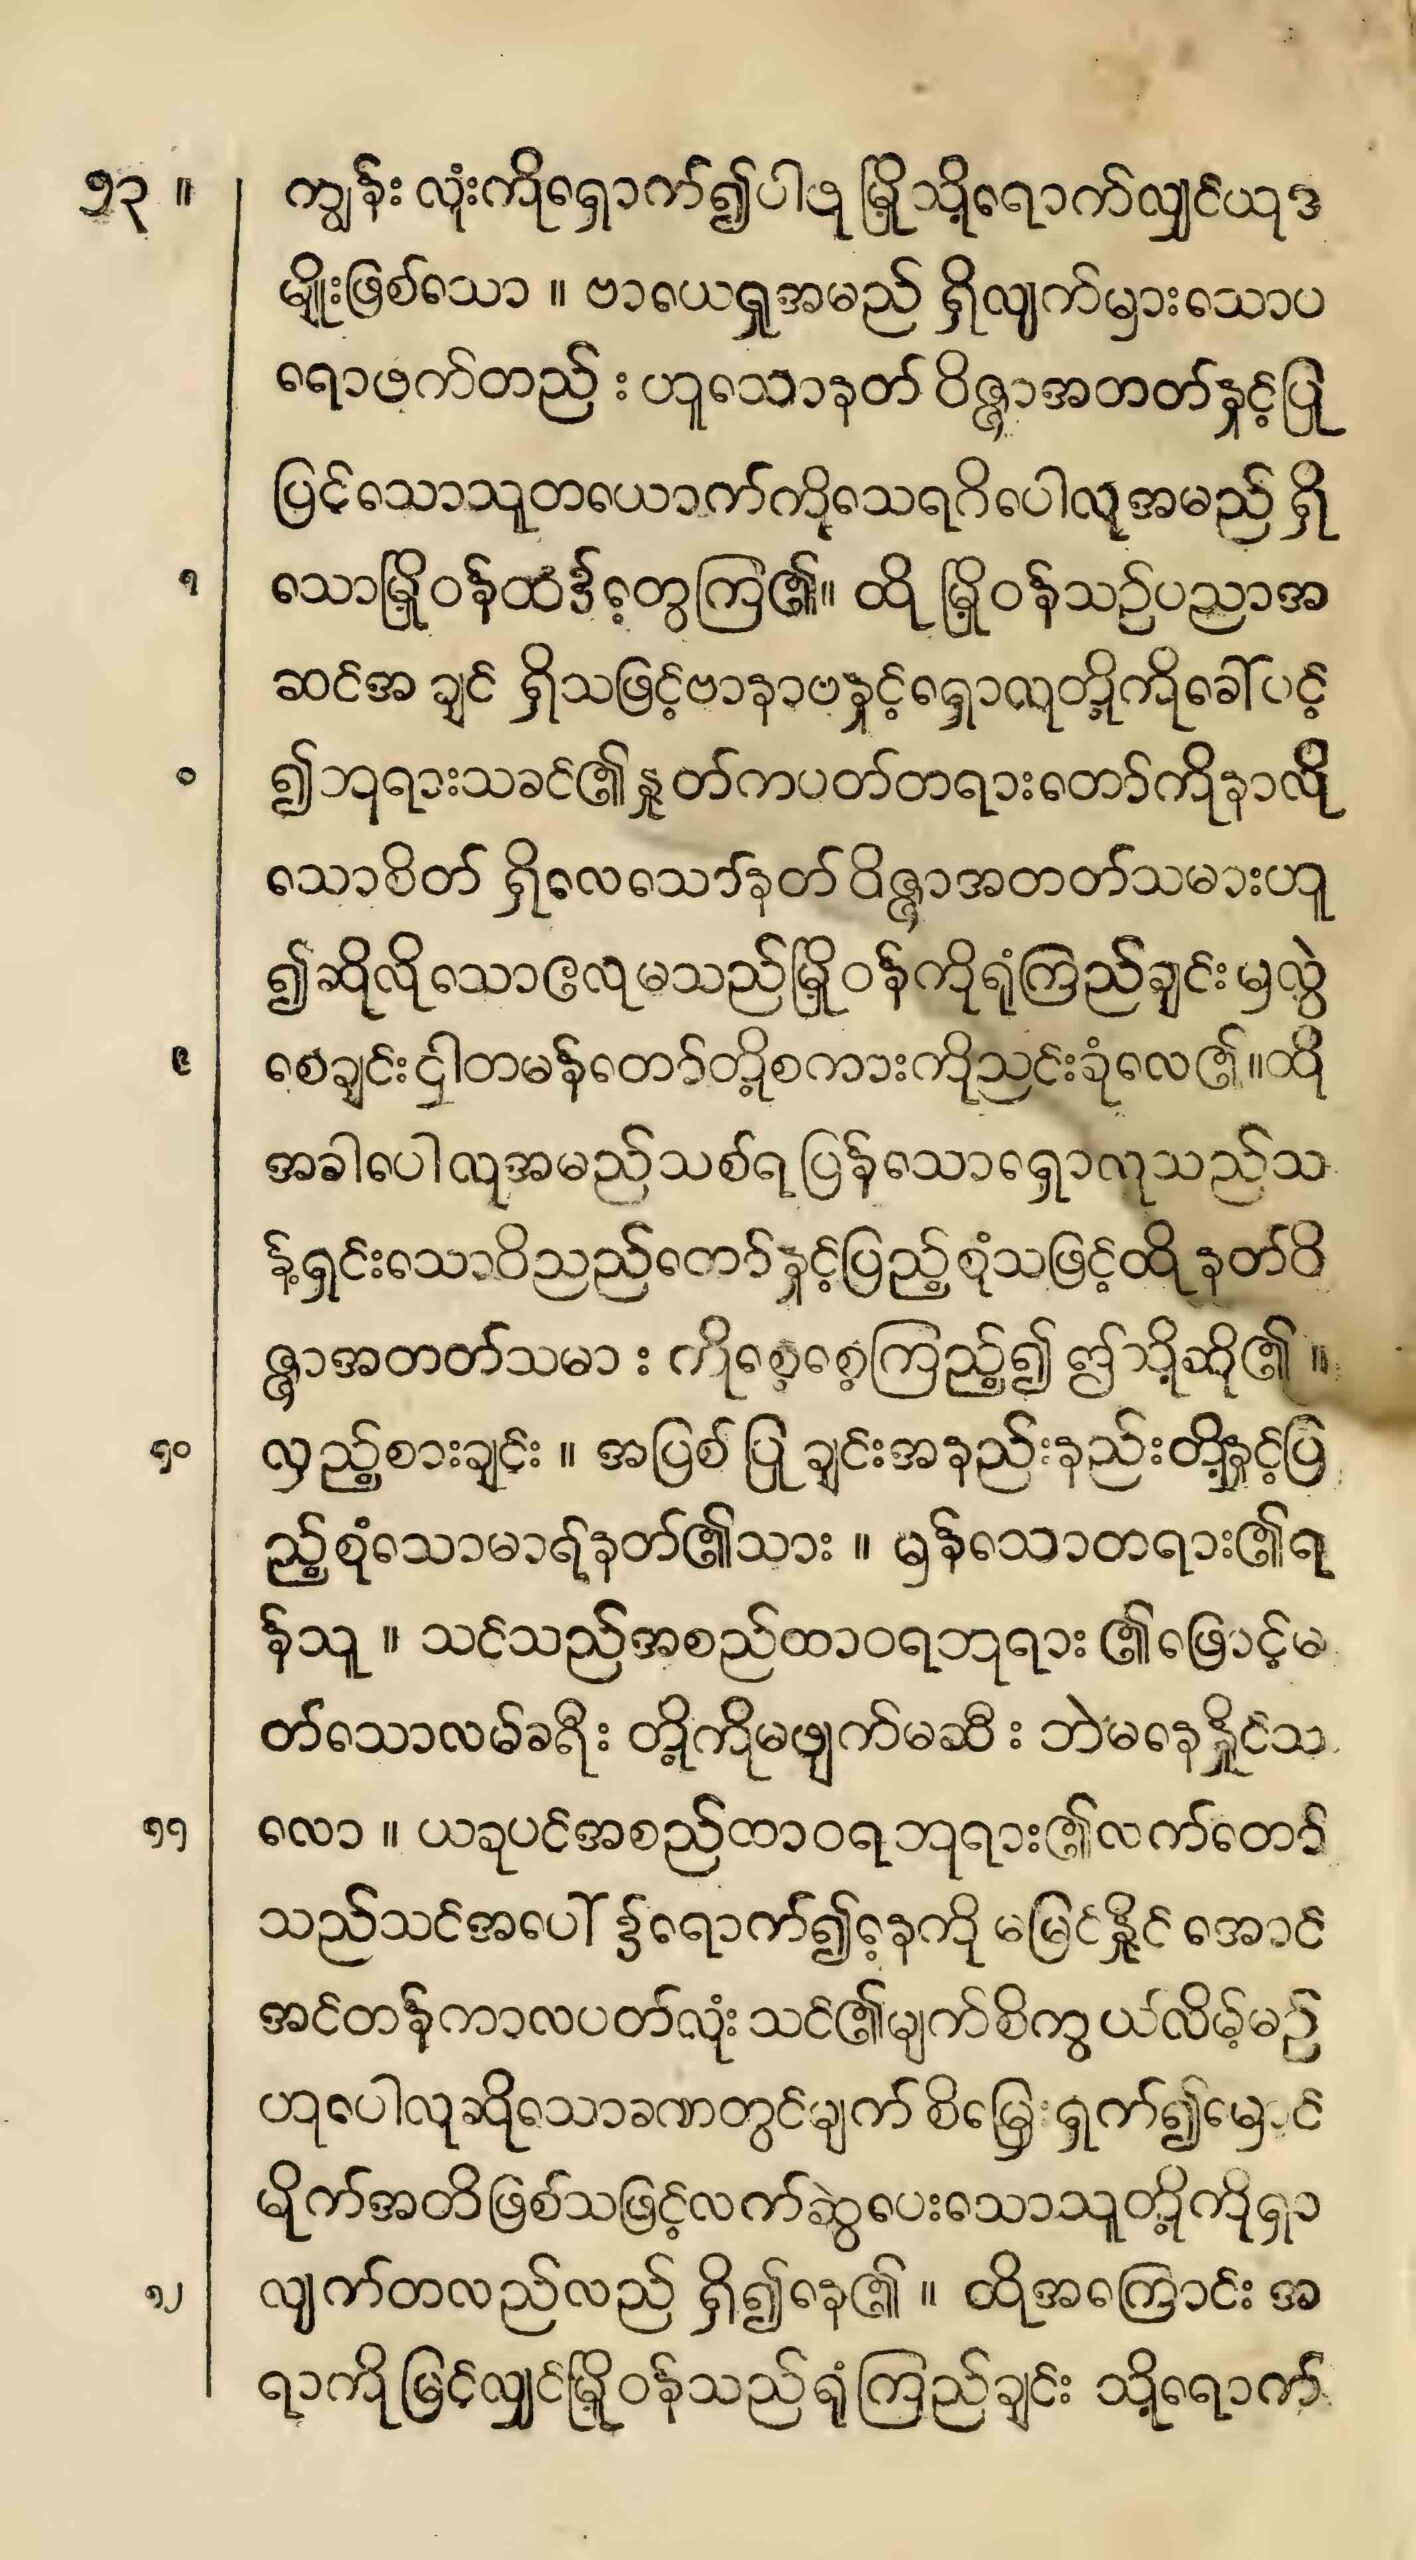 ၁၃ ။ ကျွန်းလုံးကိုရှောက်၍ပါဖုမြို့သို့ရောက်လျှင်ယုဒ
မျိုးဖြစ်သော ။ ဗာယေရှုအမည် ရှိလျက်မှားသောပ
ရောဖက်တည်း ဟူသောနတ် ဝိဇ္ဇာအတတ်နှင့်ပြု
ပြင်သောသူတယောက်ကိုသေရဂိပေါလုအမည် ရှိ
၇ သောမြို့ဝန်ထံ၌တွေ့ကြ၏။ ထို မြို့ဝန်သဉ်ပညာအ
ဆင်အ ချင် ရှိသဖြင့်ဗာနာဗနှင့်ရှောလုတို့ကိုခေါ်ပင့်
၀ ၍ဘုရားသခင်၏နှုတ်ကပတ်တရားတော်ကိုနာလို
သောစိတ် ရှိလေသော်နတ် ဝိဇ္ဇာအတတ်သမားဟူ
၍ဆိုလိုသောဧလုမသည်မြို့ဝန်ကိုရုံကြည်ချင်းမှလွဲ
၉ စေချင်း၎င်္ှါတမန်တော်တို့စကားကိုညင်းခုံလေ၏။ထို
အခါပေါလုအမည်သစ်ရ ပြန်သောရှောလုသည်သ
န့်ရှင်းသောဝိညည်တော်နှင့်ပြည့်စုံသဖြင့်ထို နတ်ဝိ
ဇ္ဇာအတတ်သမား ကိုစေ့စေ့ကြည့်၍ ဤသို့ဆို၏ ။
၁၀ လှည့်စားချင်း ။ အပြစ် ပြု ချင်းအနည်းနည်းတို့နှင့်ပြ
ည့်စုံသောမာရ်နတ်၏သား ။ မှန်သောတရား၏ရ
န်သူ ။ သင်သည်အစည်ထာဝရဘုရား ၏ဖြောင့်မ
တ်သောလမ်ခရီး တို့ကိုမဖျက်မဆီး ဘဲမနေနှိုင်သ
၁၁ လော ။ ယခုပင်အစည်ထာဝရဘုရား၏လက်တော်
သည်သင်အပေါ် ၌ရောက်၍နေ့ကို မမြင်နှိုင် အောင်
အင်တန်ကာလပတ်လုံး သင်၏မျက်စိကွယ်လိမ့်မဉ်
ဟုပေါလုဆိုသောခဏတွင်မျက် စိမြှေးရှက်၍မှောင်
မိုက်အတိဖြစ်သဖြင့်လက်ဆွဲပေးသောသူတို့ကိုရှာ
၁၂ လျက်တလည်လည် ရှိ၍နေ၏ ။ ထိုအကြောင်း အ
ရာကို မြင်လျှင်မြို့ဝန်သည်ရုံကြည်ချင်း သို့ရောက်